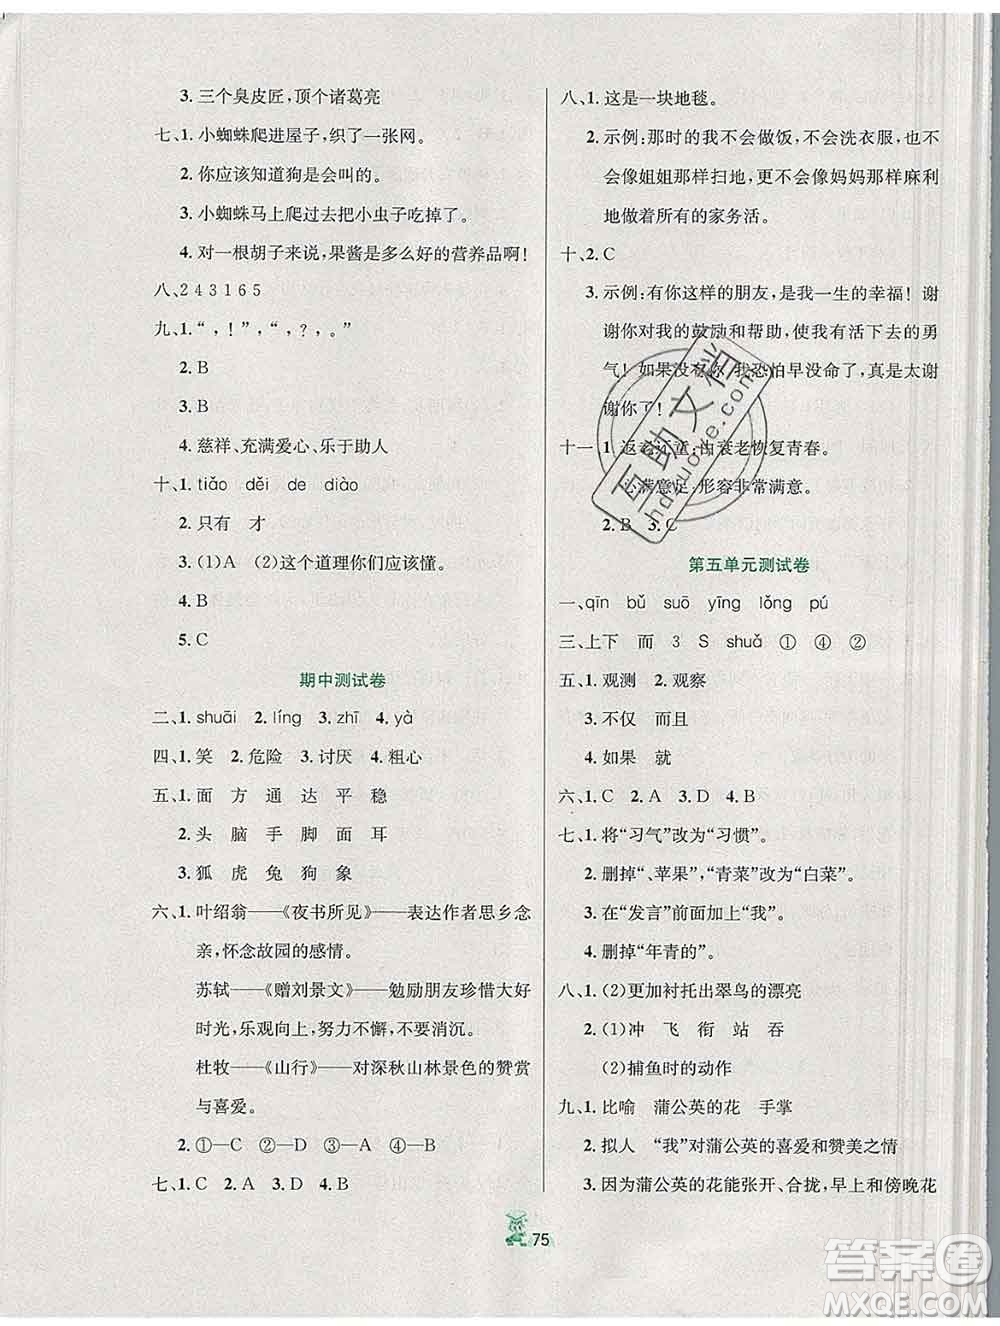 3. 三个臭皮匠，顶个诸葛亮
七、1. 小蜘蛛爬进屋子，织了一张网。
2. 你应该知道狗是会叫的。
3. 小蜘蛛马上爬过去把小虫子吃掉了。
4. 对一根胡子来说，果酱是多么好的营养品啊！
八、2 4 3 1 6 5
九、1. “，！”，“，？。”
2. B
3. B
4. 慈祥、充满爱心、乐于助人
十、1. tiǎo děi de diào
2. 只有 才
3. (1)A (2)这个道理你们应该懂。
4. B
5. C
期中测试卷
二、1. shuāi 2. líng 3. zhī 4. yà
四、1. 笑 2. 危险 3. 讨厌 4. 粗心
五、1. 面 方 通 达 平 稳
2. 头 脑 手 脚 面 耳
3. 狐 虎 兔 狗 象
六、1. 叶绍翁——《夜书所见》——表达作者思乡念
亲，怀念故园的感情。
苏轼——《赠刘景文》——勉励朋友珍惜大好
时光，乐观向上，努力不懈，不要消沉。
杜牧——《山行》——对深秋山林景色的赞赏
与喜爱。
2. ①—C ②—D ③—A ④—B
七、1. C 2. A 3. D 4. B
八、1. 这是一块地毯。
2. 示例：那时的我不会做饭，不会洗衣服，也不
会像姐姐那样扫地，更不会像妈妈那样麻利
地做着所有的家务活。
十、2. C
3. 示例：有你这样的朋友，是我一生的幸福！谢
谢你对我的鼓励和帮助，使我有活下去的勇
气！如果没有你，我恐怕早没命了，真是太谢
谢你了！
十一、1. 返老还童：由衰老恢复青春。
心满意足：形容非常满意。
2. B 3. C
第五单元测试卷
一、qīn bǔ suō yīng lǒng pú
三、上下 而 3 S shuǎ ① ④ ②
五、1. 观测 2. 观察
3. 不仅 而且
4. 如果 就
六、1. C 2. A 3. D 4. B
七、1. 将“习气”改为“习惯”。
2. 删掉“、苹果”，“青菜”改为“白菜”。
3. 在“发言”前面加上“我”。
4. 删掉“年青的”。
八、1. (2)更加衬托出翠鸟的漂亮
2. (1)冲 飞 衔 站 吞
(2)捕鱼时的动作
九、1. 比喻 蒲公英的花 手掌
2. 拟人 “我”对蒲公英的喜爱和赞美之情
3. 因为蒲公英的花能张开、合拢，早上和傍晚花
75
互助文档
hdzuowe.com
答案圈
MXQE.COM